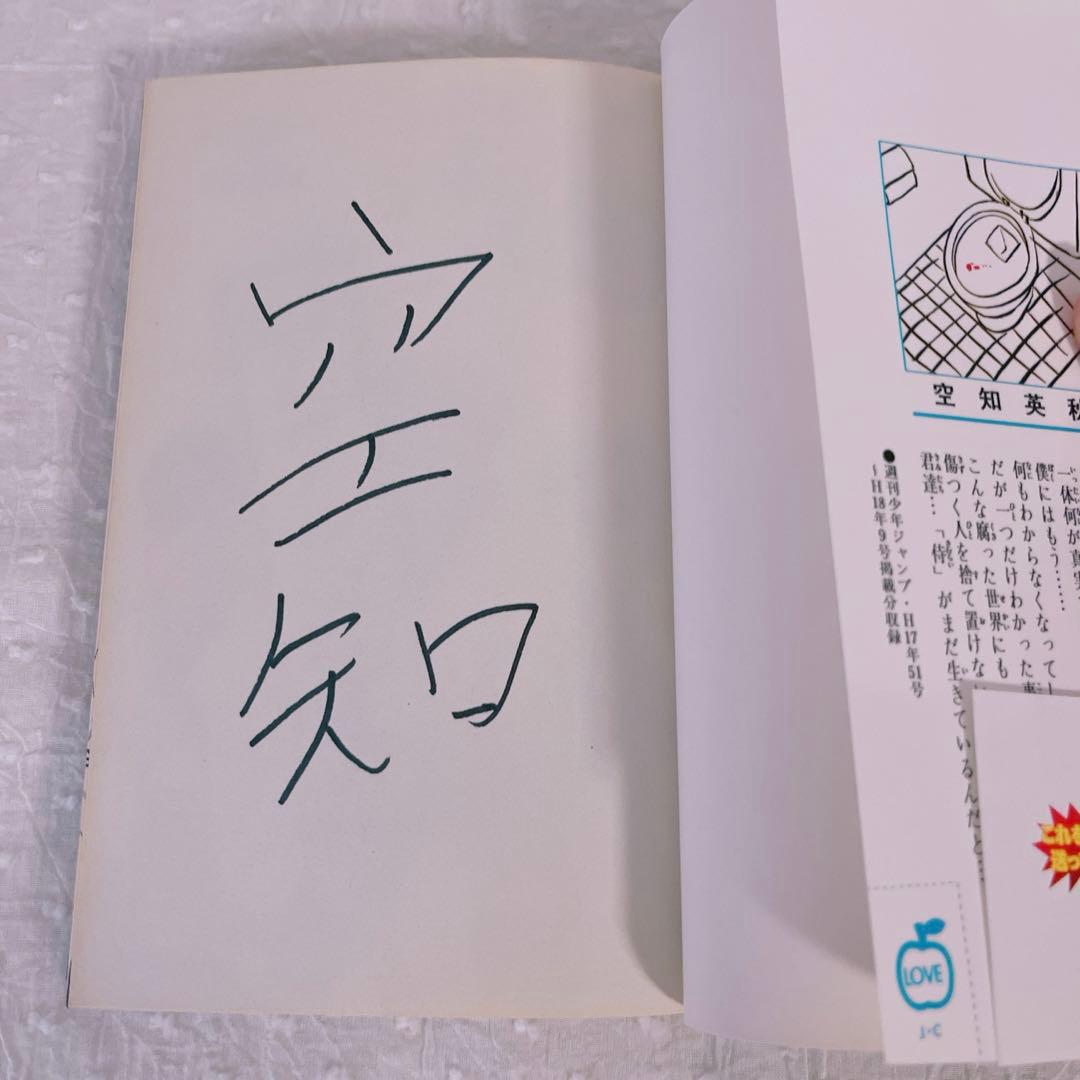 空知
空知英
一体何が真実
僕にはもう……
何もわからなくなって
だが一つだけわかった
こんな腐った世界にも
傷つく人を捨て置けな
君達…「侍」がまだ生きているんだと…
●週刊少年ジャンプ・H17年51号
〜H18年9号掲載分収録
これを
送っ
LOVE
J・C